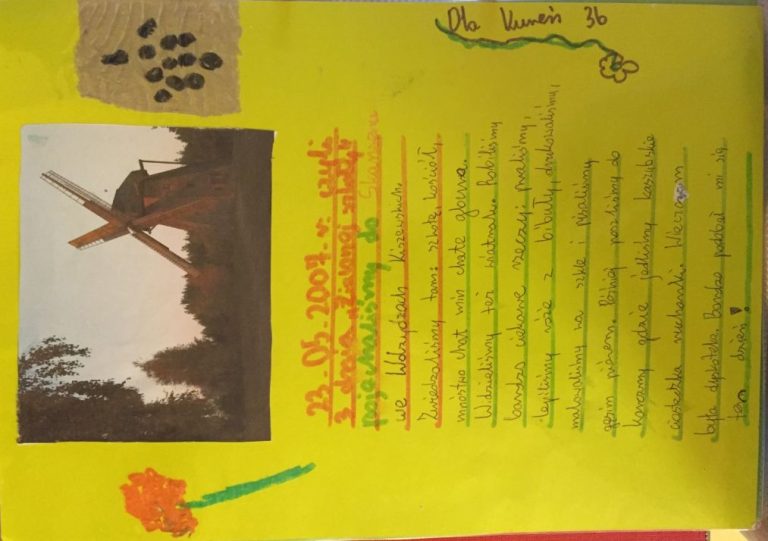 Dla Kuneś 3b
23.05.2007 r. czyli
3 dnia "Zielonej szkoły"
pojechaliśmy do Skansenu
we Wdzydzach Kiszewskich.
Zwiedzaliśmy tam: szkołę, kościół,
mnóstwo chat min chatę gburra.
Widzieliśmy też wiatraki. Robiliśmy
bardzo ciekawe rzeczy: praliśmy,
lepiliśmy róże z bibuły, drukowaliśmy,
malowaliśmy na szkle i pisaliśmy
gęsim piórem. Później poszliśmy do
karczmy gdzie jedliśmy kaszubskie
ciasteczka ruchanki. Wieczorem
była dyskoteka. Bardzo podobał mi się
ten dzień!